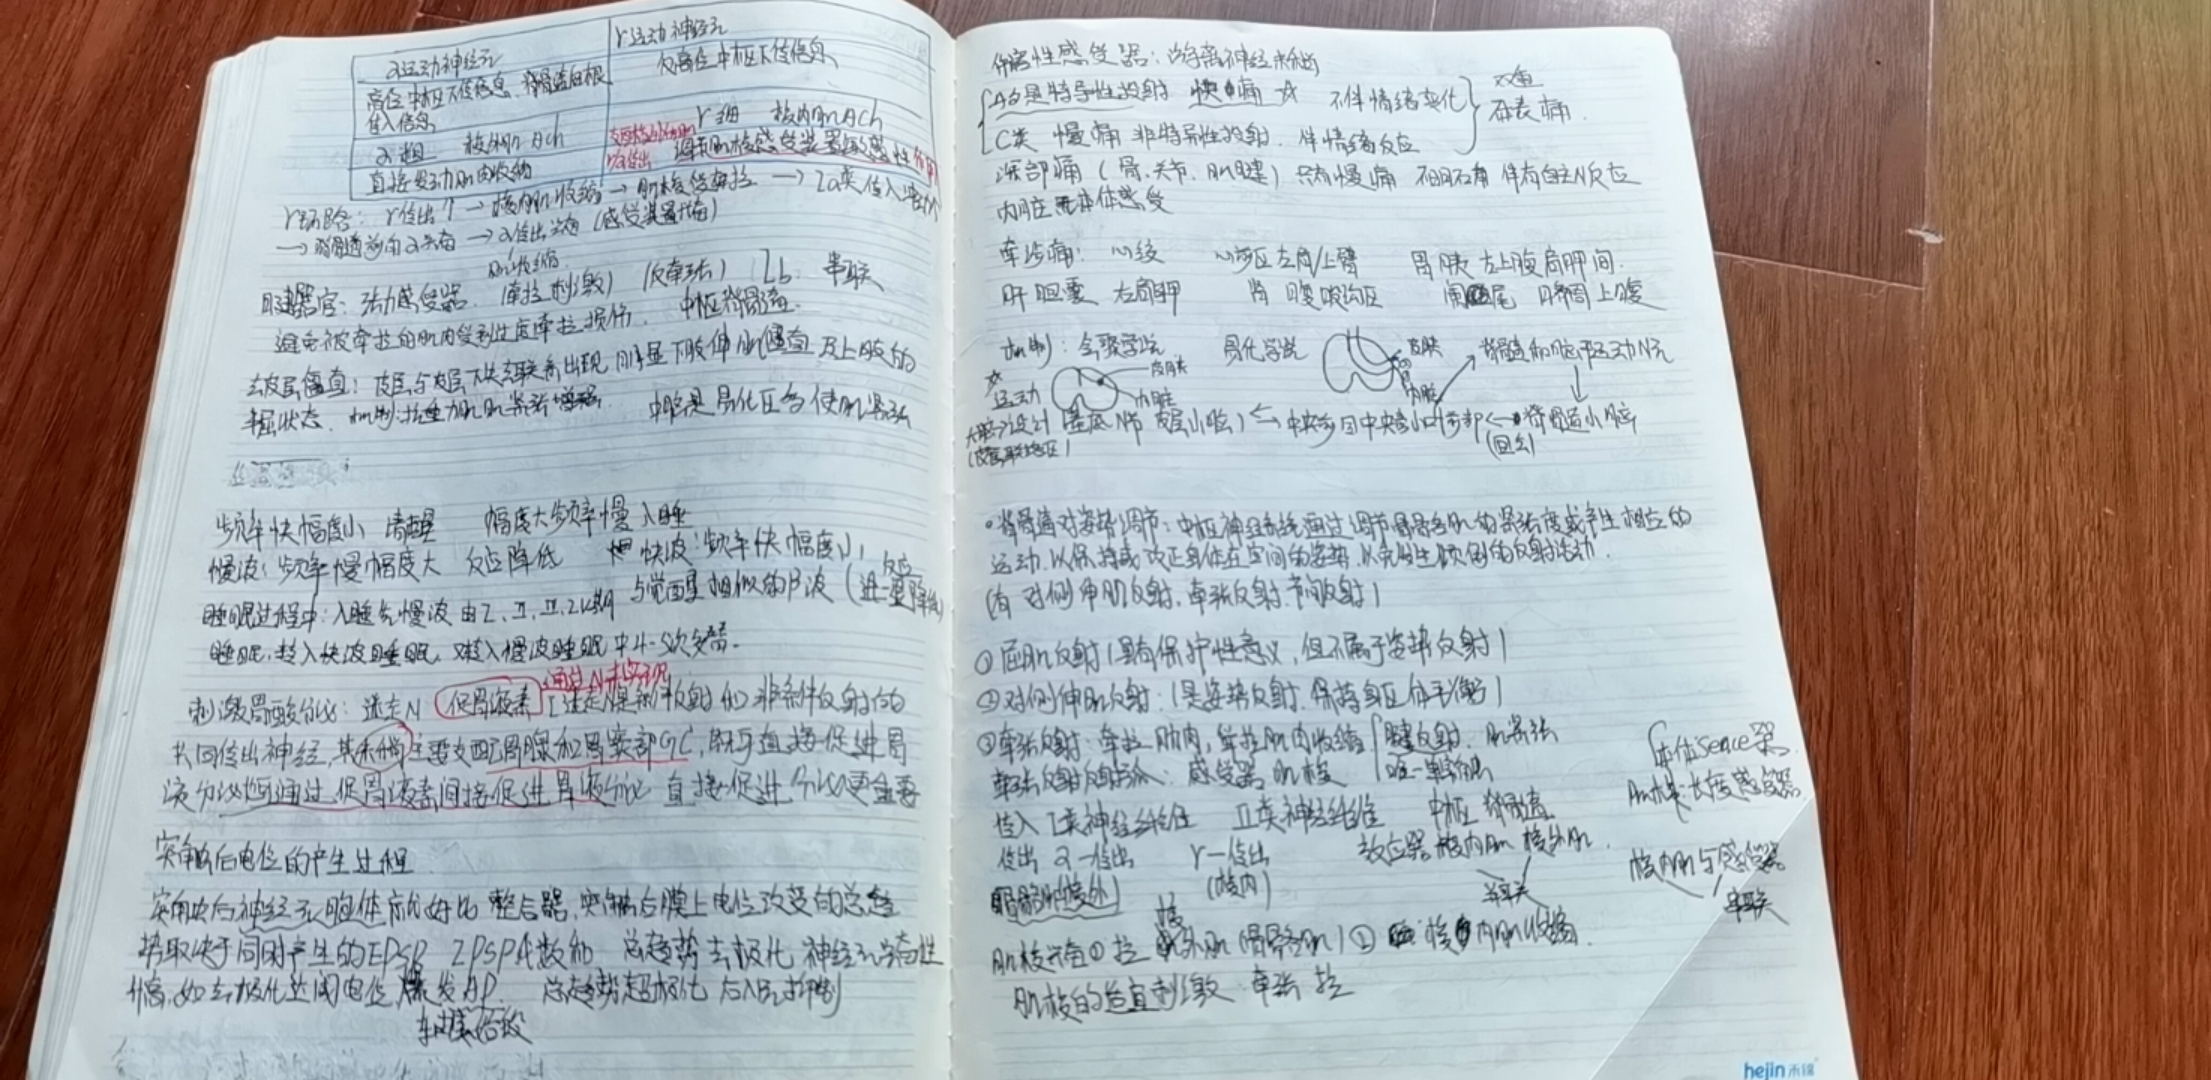 α运动神经元
高位中枢下传信息、脊髓后根
传入信息
α粗 梭外肌 Ach
直接发动肌肉收缩
γ运动神经元
仅高位中枢下传信息
γ细 梭内肌 Ach
调节肌梭感受装置敏感性
γ环路：γ传出↑→梭内肌收缩→肌梭受牵拉→Ia类传入
→脊髓前角α兴奋→α传出 （感受装置
肌收缩
腱器官：张力感受器 （牵拉刺激）（反牵张） Ib 串联
避免被牵拉的肌肉受到过度牵拉损伤. 中枢脊髓
去皮层僵直：皮层与皮层下失去联系出现明显下肢伸肌僵直及上肢的
半屈状态. 机制:抗重力肌肌紧张增强. 中脑是易化区 使肌紧张
频率快幅度小 清醒 幅度大频率慢 入睡
慢波：频率慢幅度大 反应降低 快波：频率快幅度小,
与觉醒相似的β波（进一步降低）
反应
睡眠过程中：入睡先慢波 由I、II、III、IV期
睡眠，转入快波睡眠，又转入慢波睡眠 中4-5次交替.
通过N末实现
刺激胃酸分泌：迷走N 促胃液素 [迷走N是条件反射和非条件反射的
共同传出神经，其末梢主要支配胃腺和胃窦部GC，既可直接促进胃
液分泌也可通过促胃液素间接促进胃液分泌 直接促进分泌更重要
突触后电位的产生过程
突触后神经元胞体就好比整合器，突触后膜上电位改变的总趋
势取决于同时产生的EPSP IPSP代数和 总趋势去极化 神经元兴奋性
↑高，如去极化达阈电位 爆发AP. 总趋势超极化 后N元抑制
轴突始段
伤害性感受器：游离神经末梢
Aδ是特异性投射 快痛 ☆ 不伴情绪变化
C类 慢痛 非特异性投射. 伴情绪反应
双重
体表痛.
深部痛（骨、关节、肌腱）只有慢痛 不明确 伴有自主N反应
内脏 无本体感受
牵涉痛：心绞 心前区左肩/上臂 胃胰 左上腹肩胛间.
肝胆囊 右肩胛 肾 腹股沟区 阑尾 脐周上腹
机制：会聚学说 易化学说
皮肤
内脏
皮肤
内脏
脊髓和脑干运动N元
运动
大脑→设计 基底N节 皮层小脑） ⇆ 中央前回中央 ← 脊髓小脑
（皮层联络区）
◦脊髓对姿势调节：中枢神经系统通过调节骨骼肌的紧张度或产生相应的
运动，以保持或改正身体在空间的姿势，以 的反射活动.
（有 对侧伸肌反射，牵张反射，节间反射）
①屈肌反射（具有保护性意义，但不属于姿势反射）
②对侧伸肌反射：（是姿势反射，保持身体平衡）
③牵张反射：牵拉肌肉，牵拉肌肉收缩 腱反射. 肌紧张
唯一单突触
牵张反射反射弧：感受器 肌梭
传入 I类神经纤维 II类神经纤维 中枢 脊髓
传出 α-传出 γ-传出 效应器 梭内肌 梭外肌.
骨骼肌(梭外) （梭内）
并联
本体sence器.
长度感受器
梭内肌与感受器
串联
肌梭兴奋①拉 梭外肌（骨骼肌）② 梭内肌收缩.
肌梭的适宜刺激 牵张 拉
hejin 禾锦